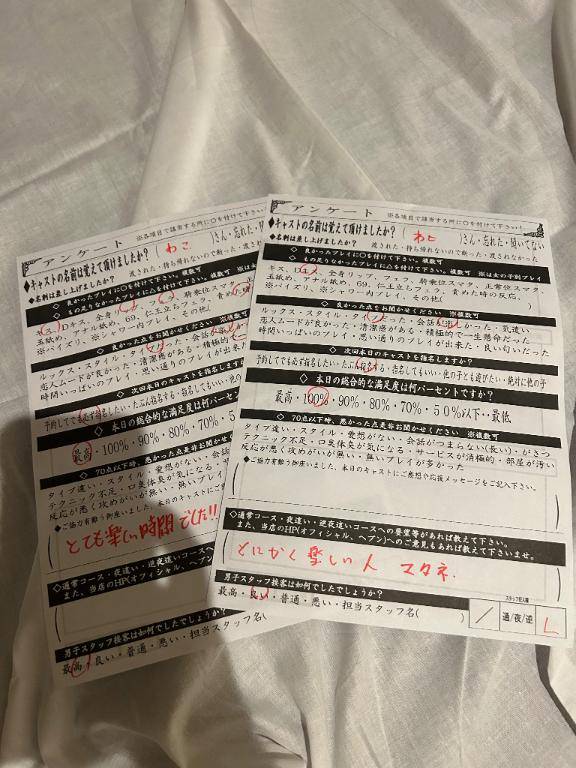 アンケート ※各項目で該当する所に○を付けて下さい
◆キャストの名前は覚えて頂けましたか?( わこ )さん・忘れた・
◆名刺は差し上げましたか? 渡された・持ち帰れないので断った・渡され
◇良かったプレイに○を付けて下さい。複数可
◇もの足りなかったプレイに△を付けて下さい。複数可 ※は女の子別プレイ
キス、Dキス、全身リップ、
騎乗位スマタ、
玉舐め、アナル舐め、69、仁王立ちフェラ、責めた時
※パイズリ、※シャワー室内プレイ、その他(
◇良かった点をお聞かせください ※複数可
ルックス・スタイル・タイプ だった・会話が
恋人ムードが良かった・清潔感がある・積極的で
時間いっぱいのプレイ・思い通りのプレイが出来
◇次回本日のキャストを指名しますか?
予約してでも必ず指名したい・たぶん指名する・指名してもいい・他の
◆本日の総合的な満足度は何パーセント
最高・100%・90%・80%・70%・5
◇70点以下時、悪かった点是非お聞かせ
タイプ違い・スタイル・愛想がない・会話
テクニック不足・口臭体臭が気になる・サ
反応が悪く攻めがいが無い・無いプレイ
◆ご協力有難う御座いました、本日のキャストにご
とても楽しい時間でした!!
◇通常コース・夜這い・逆夜這いコースへの
また、当店のHP(オフィシャル、ヘブン)へ
男子スタッフ接客は如何でしたでしょうか?
最高・良い・普通・悪い・担当スタッフ名(
アンケート ※各項目で該当する所に○を付けて下さい
◆キャストの名前は覚えて頂けましたか?( わこ )さん・忘れた・聞いてない
◆名刺は差し上げましたか? 渡された・持ち帰れないので断った・渡されてない
◇良かったプレイに○を付けて下さい。複数可
◇もの足りなかったプレイに△を付けて下さい。複数可 ※は女の子別プレイ
キス、Dキス、全身リップ、
騎乗位スマタ、正常位スマタ、
玉舐め、アナル舐め、69、仁王立ちフェラ、責めた時の反応、
※パイズリ、※シャワー室内プレイ、その他( )
◇良かった点をお聞かせください ※複数可
ルックス・スタイル・タイプ だった・会話が楽しかった・気遣い
恋人ムードが良かった・清潔感がある・積極的で一生懸命だった
時間いっぱいのプレイ・思い通りのプレイが出来た・良い匂いだった
◇次回本日のキャストを指名しますか?
予約してでも必ず指名したい・たぶん指名する・指名してもいい・他の子とも遊びたい・絶対に他の子
◆本日の総合的な満足度は何パーセントですか?
最高・100%・90%・80%・70%・50%以下・最低
◇70点以下時、悪かった点是非お聞かせください ※複数可
タイプ違い・スタイル・愛想がない・会話がつまらない(長い)・がさつ
テクニック不足・口臭体臭が気になる・サービスが消極的・部屋が汚い
反応が悪く攻めがいが無い・無いプレイが多かった
◆ご協力有難う御座いました、本日のキャストにご感想や応援メッセージをご記入下さい。
◇通常コース・夜這い・逆夜這いコースへの要望等があれば教えて下さい。
また、当店のHP(オフィシャル、ヘブン)へのご意見もあれば教えて下さいませ。
とにかく楽しい人 マタネ.
男子スタッフ接客は如何でしたでしょうか?
最高・良い・普通・悪い・担当スタッフ名( )
スタッフ記入欄
/ 通/夜/逆 L